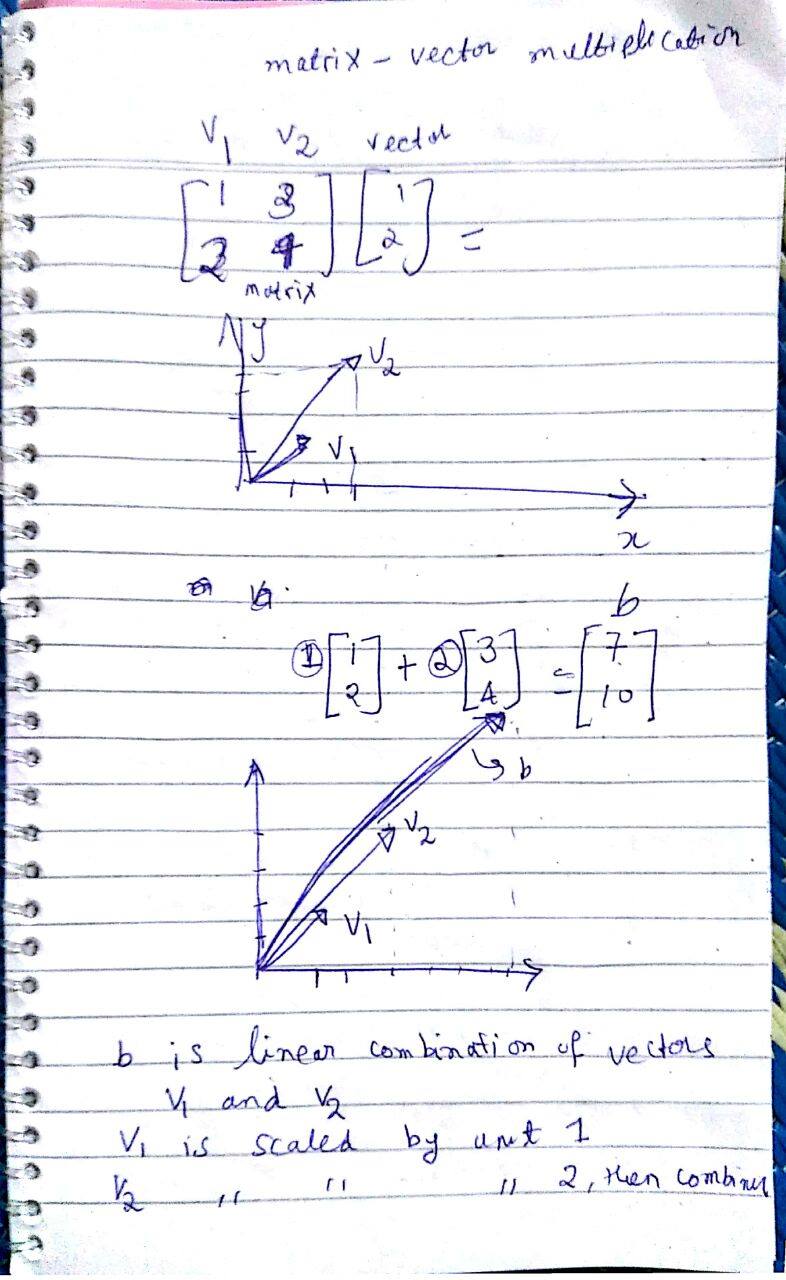 matrix - vector multiplication
V1 V2 vector
[1 3] [1]
[2 4] [2] =
matrix
y
V2
V1
x
b
①[1] + ②[3] = [7]
[2] [4] [10]
b
V2
V1
b is linear combination of vectors
V1 and V2
V1 is scaled by unit 1
V2 " " " 2, then combines